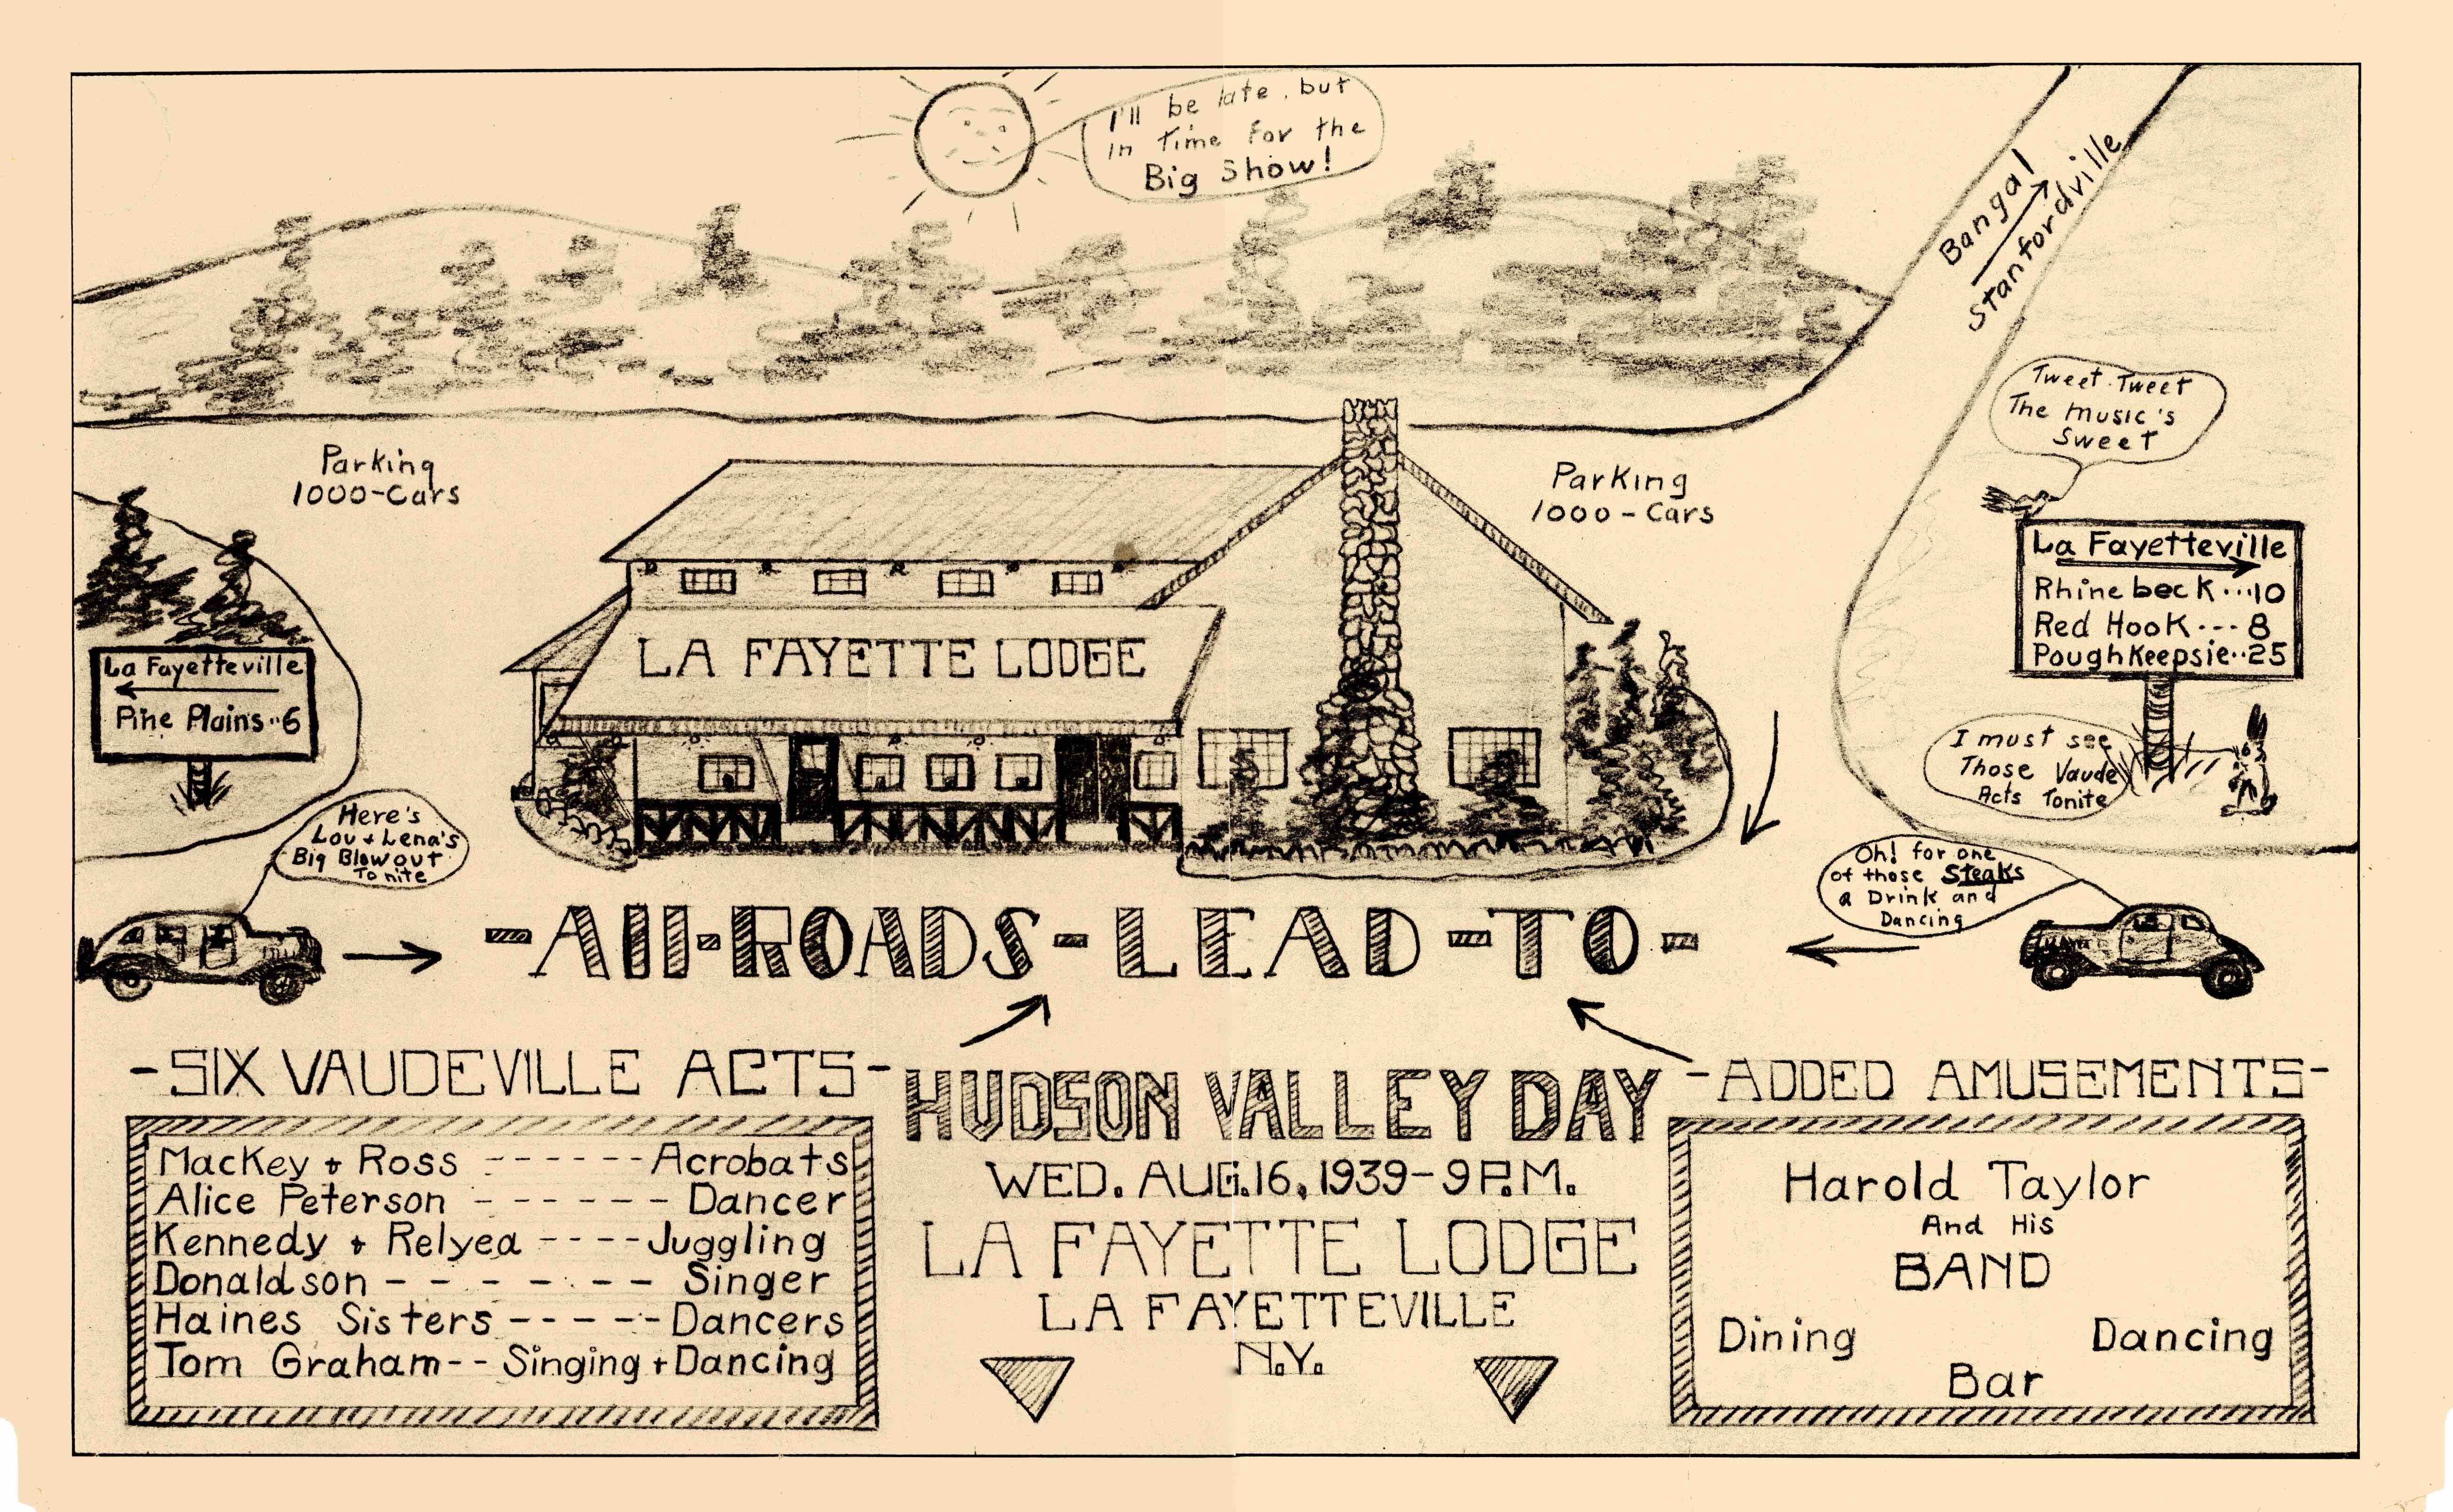 I'll be late, but
In Time For the
Big Show!
Bangal
Stanfordville
Tweet-Tweet
The Music's
Sweet
Parking
1000-Cars
Parking
1000-Cars
La Fayetteville
Rhinebeck...10
Red Hook---8
Poughkeepsie..25
LA FAYETTE LODGE
La Fayetteville
Pine Plains..6
I must see
Those Vaude
Acts Tonite
Here's
Lou + Lena's
Big Blowout
To nite
Oh! for one
of those Steaks
a Drink and
Dancing
-All-ROADS-LEAD-TO-
-SIX VAUDEVILLE ACTS-
Mackey + Ross ------Acrobats
Alice Peterson ------Dancer
Kennedy + Relyea ----Juggling
Donaldson-------Singer
Haines Sisters-----Dancers
Tom Graham--Singing+Dancing
HUDSON VALLEY DAY
WED. AUG.16, 1939-9P.M.
LA FAYETTE LODGE
LA FAYETTEVILLE
N.Y.
-ADDED AMUSEMENTS-
Harold Taylor
And His
BAND
Dining Dancing
Bar